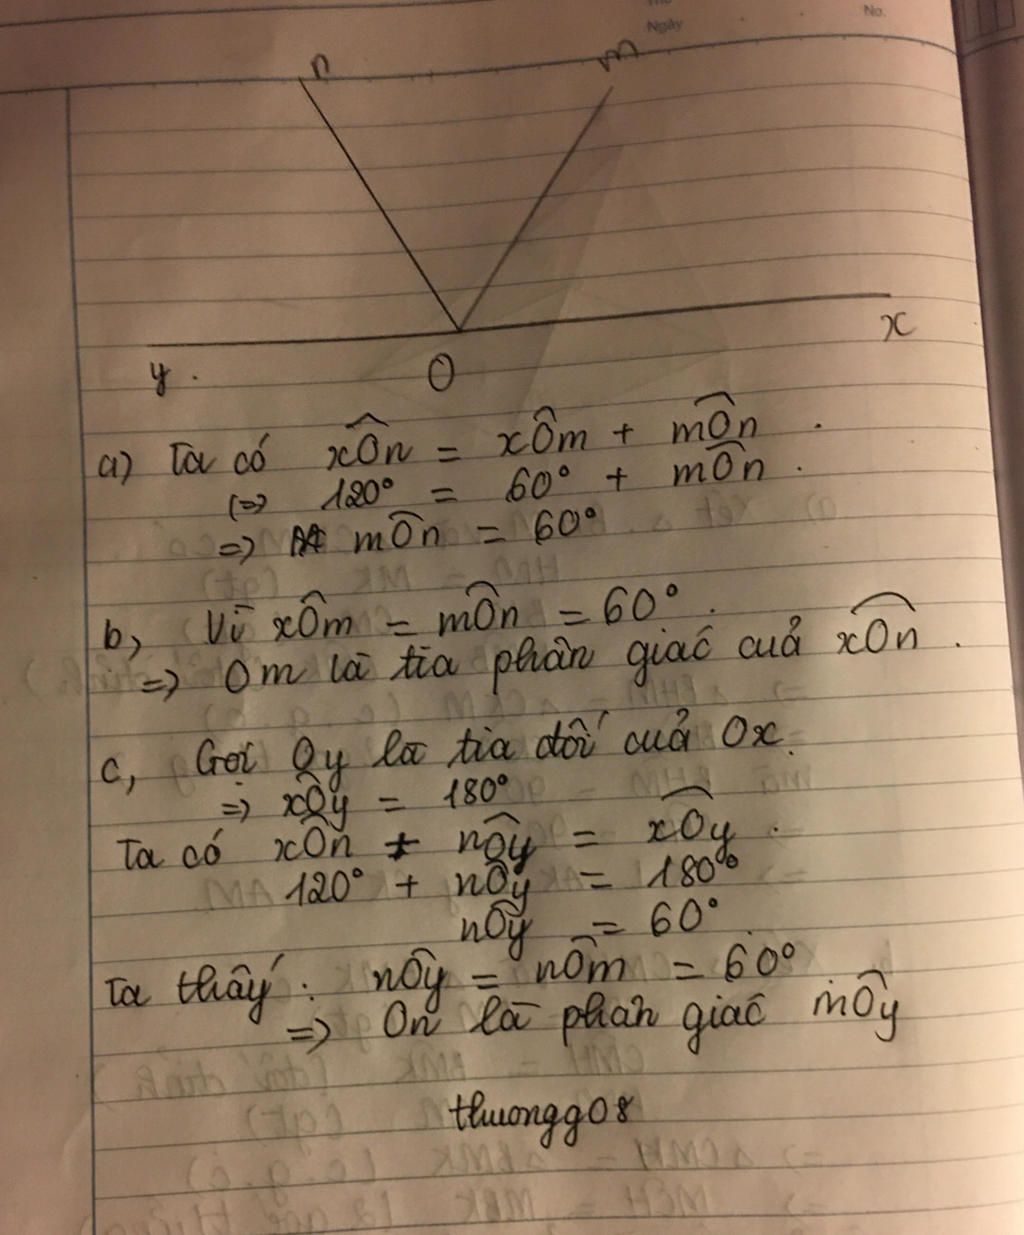 No.
Ngày
n
m
x
y .
O
a) Ta có xÔn = xÔm + mÔn .
(=) 120° = 60° + mÔn .
=) mÔn = 60°
b, Vì xÔm = mÔn = 60° .
=) Om là tia phân giác cuả xÔn .
c, Gọi Oy là tia đối cuả Ox.
=) xÔy = 180°
Ta có xÔn + nÔy = xÔy .
120° + nÔy = 180°
nÔy = 60° .
Ta thấy : nÔy = nÔm = 60°
=) On là phân giác mÔy
thuongg08